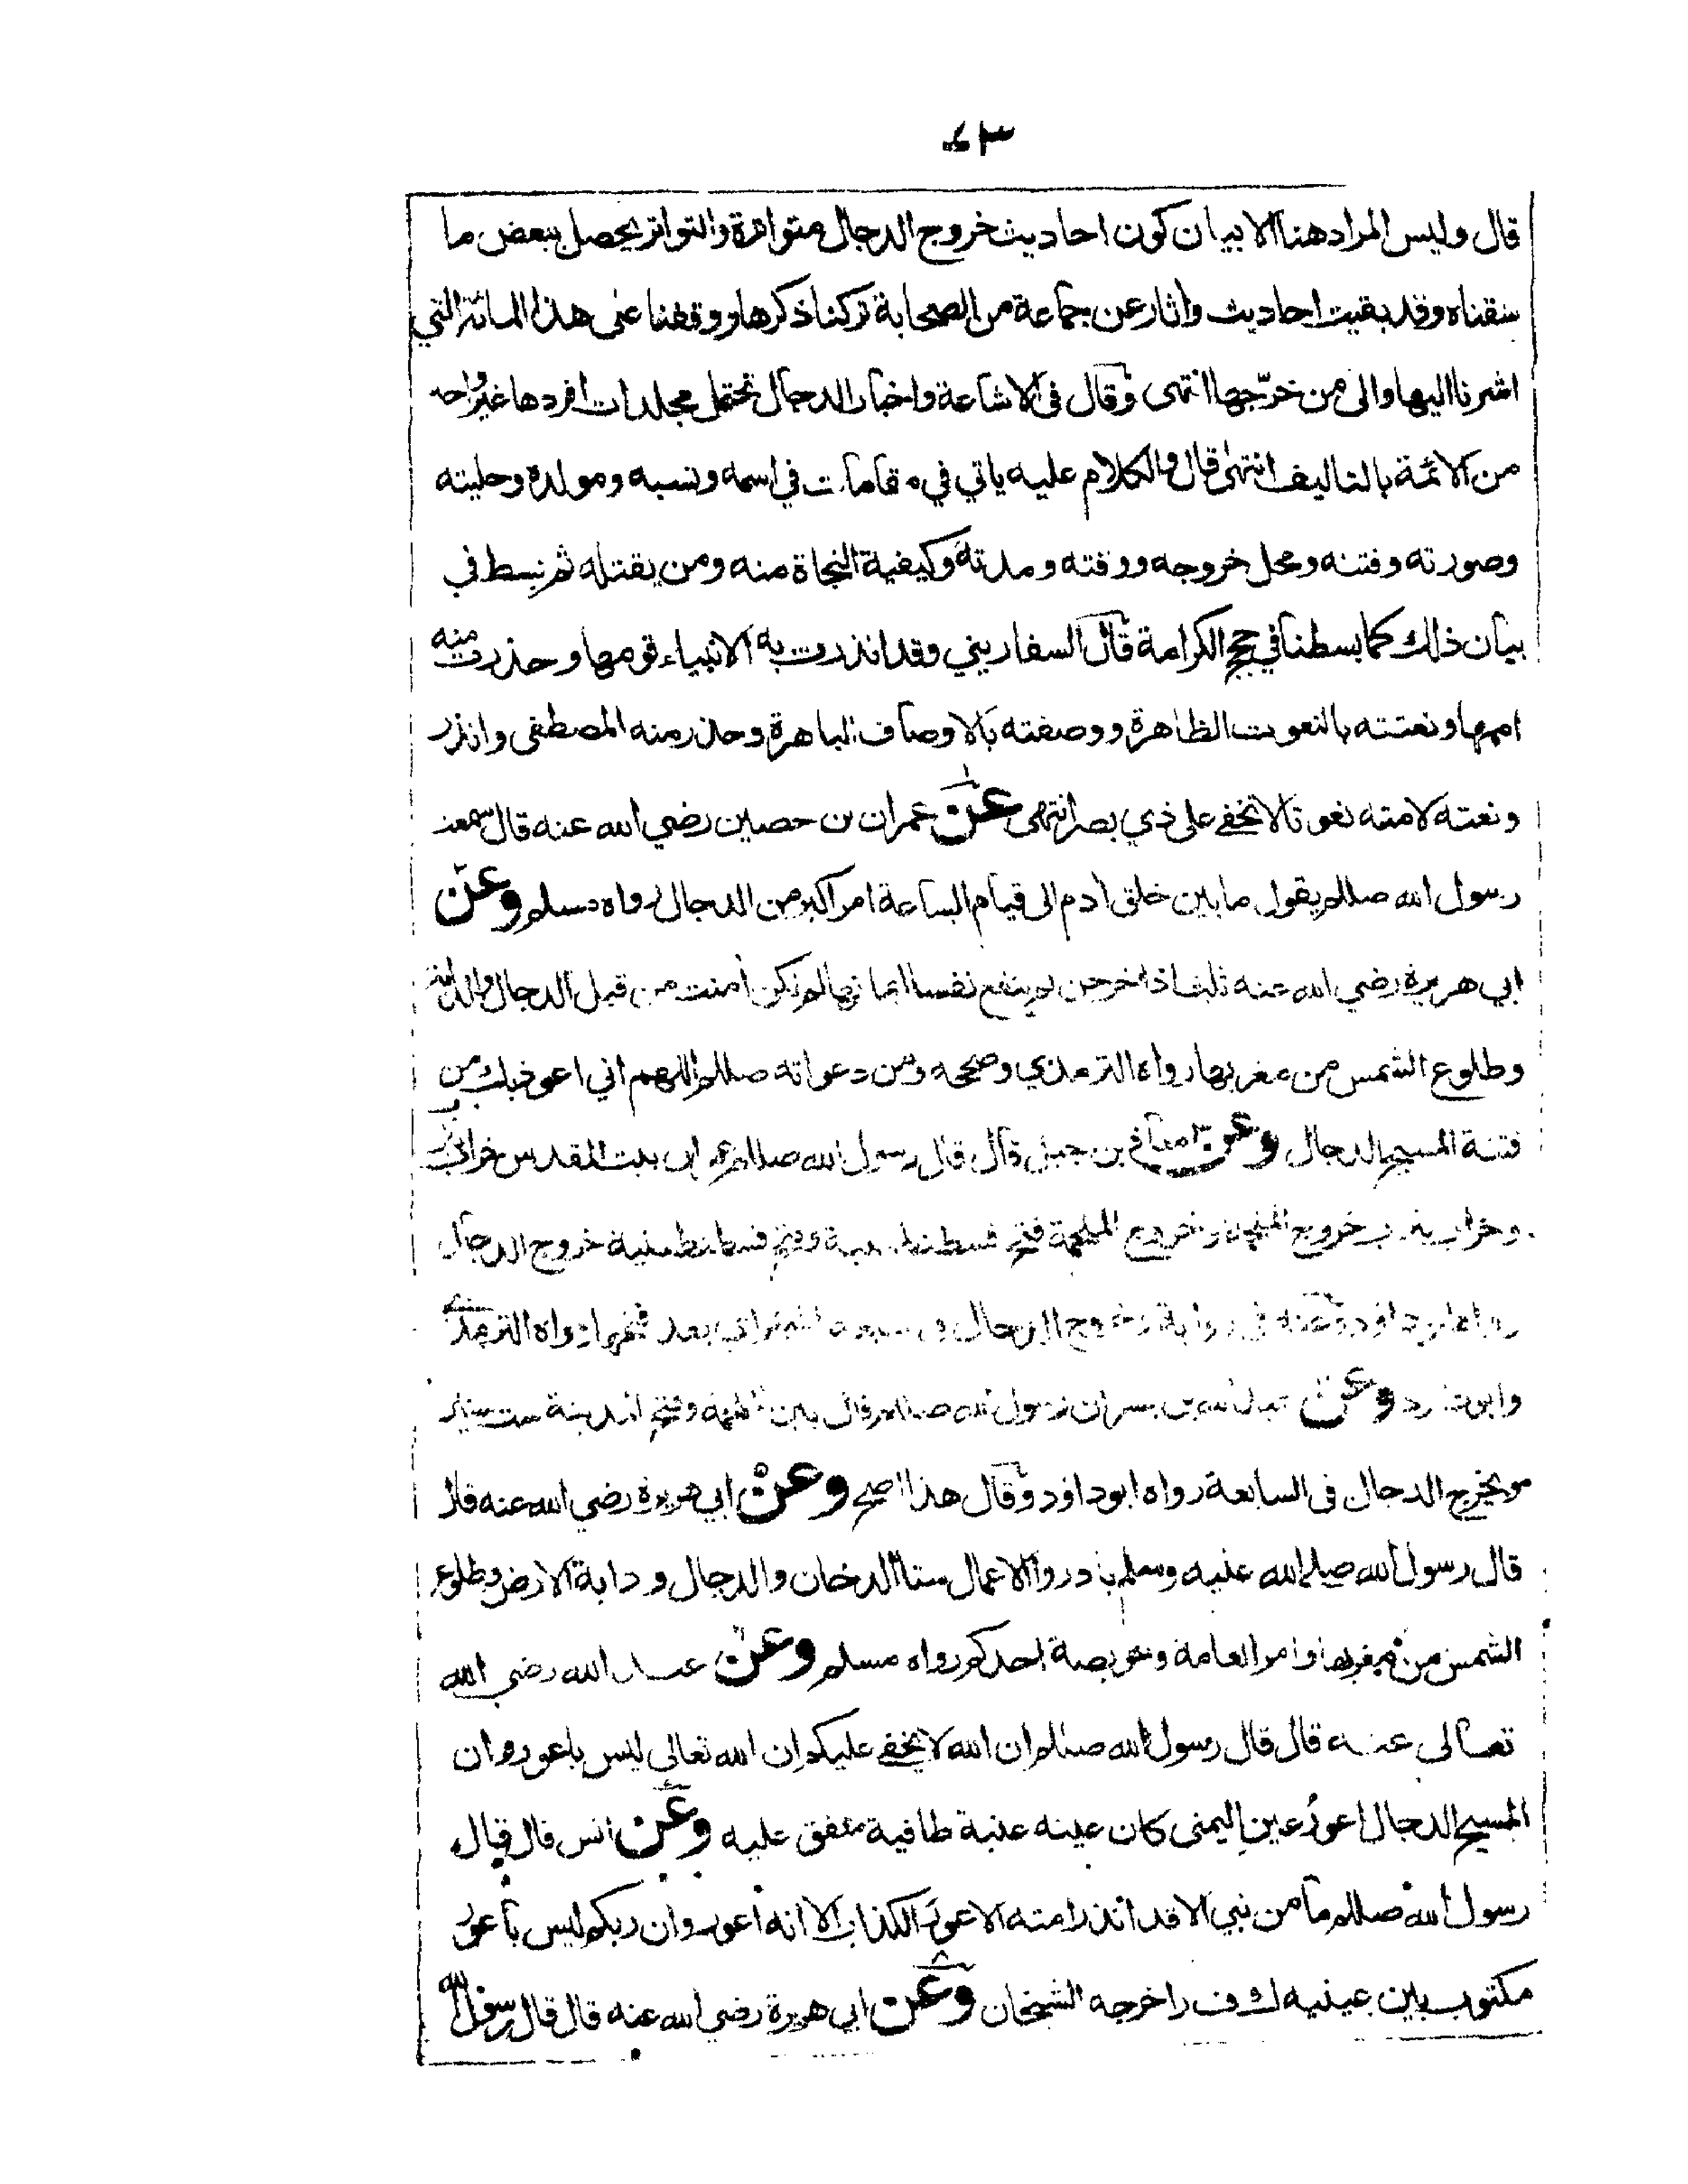 ٤٣
قال وليس المراد هنا الا بيان كون احاديث خروج الدجال متواترة والتواتر يحصل ببعض ما
سقناه وقد بقيت احاديث واثار عن جماعة من الصحابة تركنا ذكرها ووقفنا على هذا المائة التي
اشرنا اليها والى من خرّجها انتهى وقال فى الاشاعة واخبار الدجال تحتمل مجلدات افردها غير واحد
من الائمة بالتاليف انتهى قال والكلام عليه ياتي في مقامات في اسمه ونسبه ومولده وحليته
وصورته وفتنه ومحل خروجه ووقته ومدته وكيفية النجاة منه ومن يقتله ثم بسط في
بيان ذلك كما بسطنا في حجج الكرامة قال السفاريني وقد انذرت به الانبياء قومها وحذرت منه
اممها ونعتته بالنعوت الظاهرة ووصفته بالاوصاف الباهرة وحذر منه المصطفى وانذر
ونعته لامته نعوتا لا تخفى على ذي بصر انتهى عن عمران بن حصين رضي الله عنه قال سمعت
رسول الله صللم يقول ما بين خلق ادم الى قيام الساعة امر اكبر من الدجال رواه مسلم وعن
ابي هريرة رضي الله عنه ثلث اذا خرجن لم ينفع نفسا ايمانها لم تكن امنت من قبل الدجال والدابة
وطلوع الشمس من مغربها رواه الترمذي وصححه ومن دعواته صللم اللهم اني اعوذ بك من
فتنة المسيح الدجال وعن معاذ بن جبل قال قال رسول الله صللم عمران بيت المقدس خراب يثرب
وخراب يثرب خروج الملحمة وخروج الملحمة فتح قسطنطينية وفتح قسطنطينية خروج الدجال
رواه ابو داود وعنه في رواية وخروج الدجال في سبعة اشهر رواه الترمذي
وابو داود وعن عبد الله بن بسر ان رسول الله صللم قال بين الملحمة وفتح المدينة ست سنين
ويخرج الدجال فى السابعة رواه ابو داود وقال هذا اصح وعن ابي هريرة رضي الله عنه قال
قال رسول الله صلى الله عليه وسلم بادروا الاعمال ستا الدخان والدجال ودابة الارض وطلوع
الشمس من مغربها وامر العامة وخويصة احدكم رواه مسلم وعن عبد الله رضي الله
تعالى عنه قال قال رسول الله صللم ان الله لا يخفى عليكم ان الله تعالى ليس باعور وان
المسيح الدجال اعور عين اليمنى كان عينه عنبة طافية متفق عليه وعن انس قال قال
رسول الله صللم ما من نبي الا قد انذر امته الاعور الكذاب الا انه اعور وان ربكم ليس باعور
مكتوب بين عينيه ك ف ر اخرجه الشيخان وعن ابي هريرة رضي الله عنه قال قال رسول الله